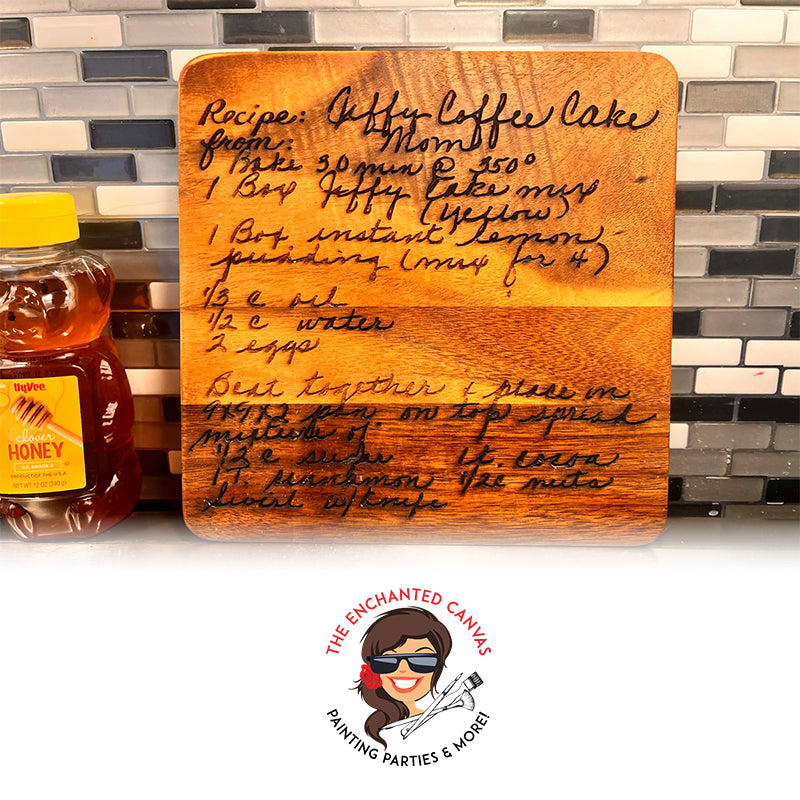 Recipe: Jiffy Coffee Cake
from: Mom
Bake 30 min @ 350°
1 Box Jiffy Cake mix
(yellow)
1 Box instant lemon
pudding (mix for 4)
1/3 c oil
1/2 c water
2 eggs
Beat together & place in
9x9x2 pan on top spread
mixture of
1/2 c suger 1t. cocoa
1T. cinnamon 1/2c nuts
Swirl w/knife
HyVee.
clover
HONEY
U.S. GRADE A
PRODUCT OF THE U.S.A.
NET WT 12 OZ (340 g)
THE ENCHANTED CANVAS
PAINTING PARTIES & MORE!